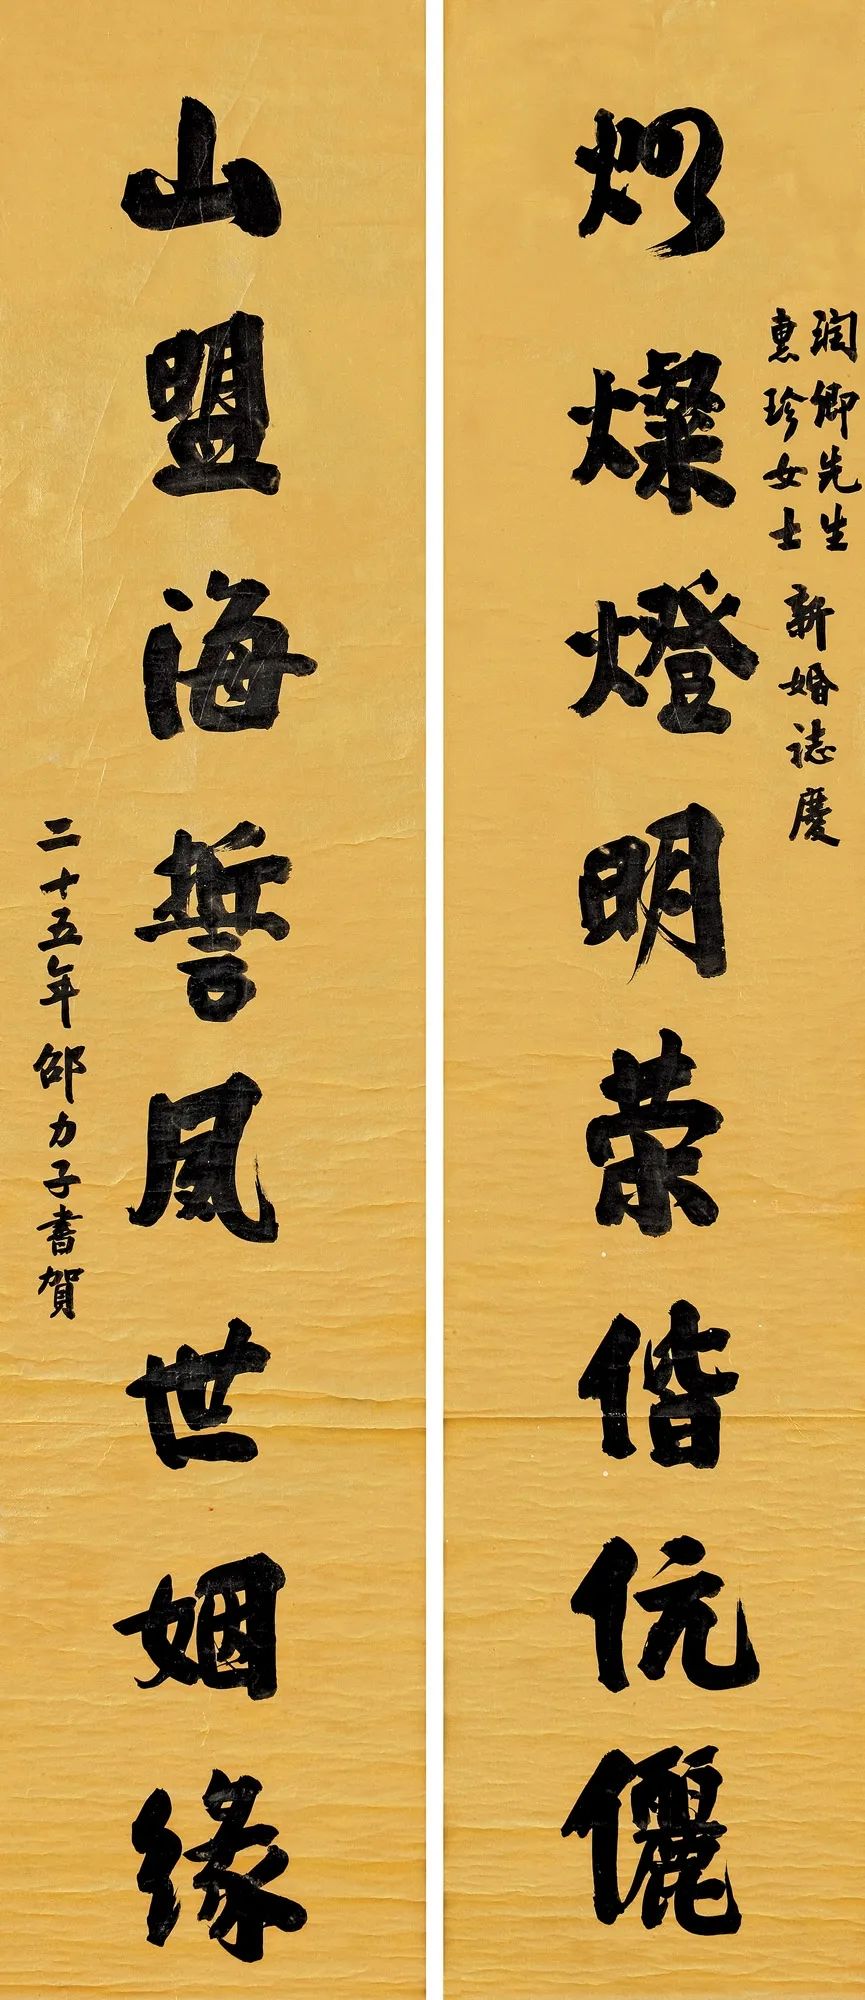 潤卿先生
惠珍女士
新婚誌慶
燦燈明榮偕伉儷
山盟海誓夙世姻緣
二十五年邵力子書賀